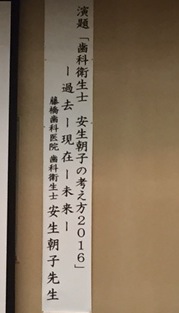 演題「歯科衛生士 安生朝子の考え方2016」
ー過去ー現在ー未来ー
藤橋歯科医院 歯科衛生士 安生朝子先生